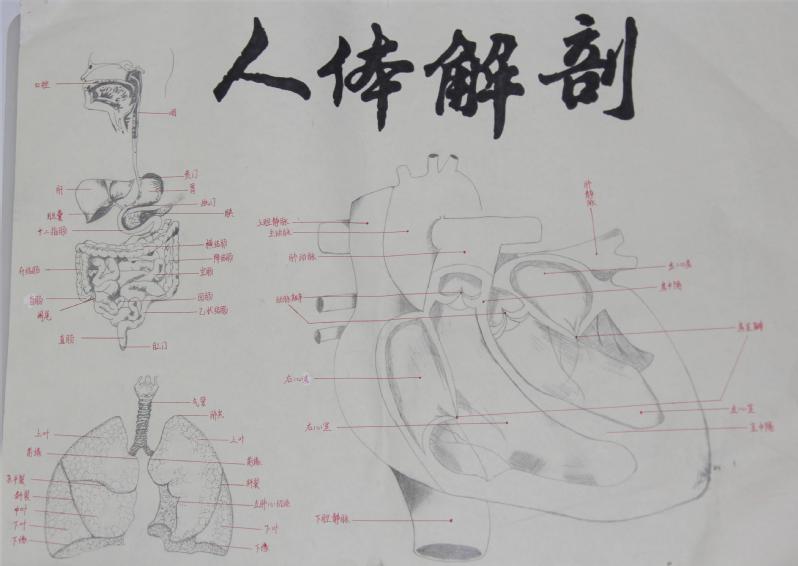 人体解剖
口腔
咽
贲门
肝
胃
幽门
胆囊
胰
十二指肠
横结肠
降结肠
升结肠
空肠
盲肠
回肠
阑尾
乙状结肠
直肠
肛门
气管
肺尖
上叶
上叶
前缘
前缘
水平裂
斜裂
斜裂
中叶
左肺心切迹
下叶
下叶
下缘
下缘
肺静脉
上腔静脉
主动脉
肺动脉
左心房
动脉瓣
房中隔
房室瓣
右心房
左心室
右心室
室中隔
下腔静脉